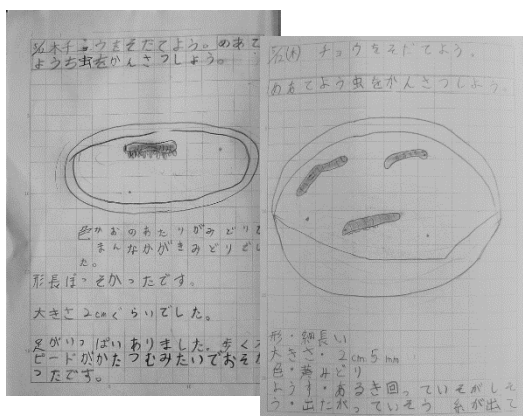 5/2木チョウをそだてよう。めあて
ようち虫をかんさつしよう。
色かおのあたりがみどりで
まんなかがきみどりでし
た。
形長ぼっそかったです。
大きさ2cmぐらいでした。
足がいっぱいありました。歩くス
ピードがかたつむりみたいでおそか
ったです。
5/2(木) チョウをそだてよう。
めあてよう虫をかんさつしよう。
形・細長い
大きさ・2cm5mm
色・黄みどり
ようす・あるき回っていそがしそ
う・出たがっていそう 糸が出て